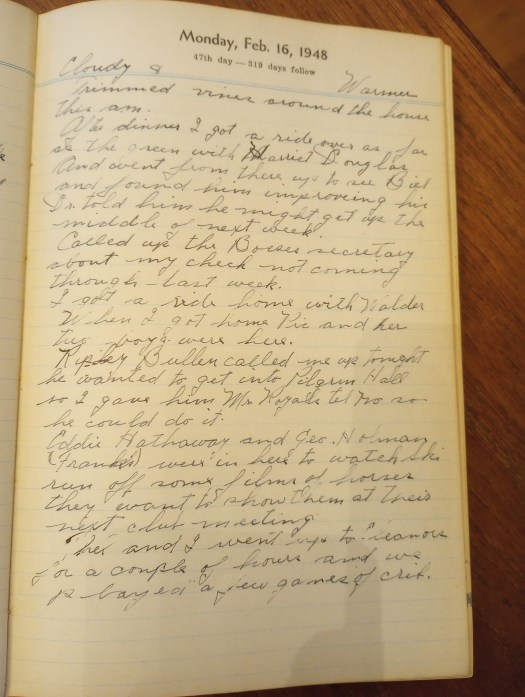 Monday, Feb. 16, 1948
47th day — 319 days follow
Cloudy & Warmer
Trimmed vines around the house
this am.
After dinner I got a ride over as far
as the green with Harriet Douglas
And went from there up to see Bill
and found him improving his
Dr told him he might get up the
middle of next week.
Called up the Boeses secretary
about my check not coming
through - last week.
I got a ride home with Walder
When I got home Vic and her
two boys were here.
Ripley Bullen called me up tonight
he wanted to get into Pilgrim Hall
so I gave him Mr. tel No so
he could do it.
Eddie Hathaway and Geo. Holman
(Frank's) were in here to watch Ski
run off some films of horses
they want to show them at their
next club meeting
and I went up to
for a couple of hours and we
played a few games of crib.